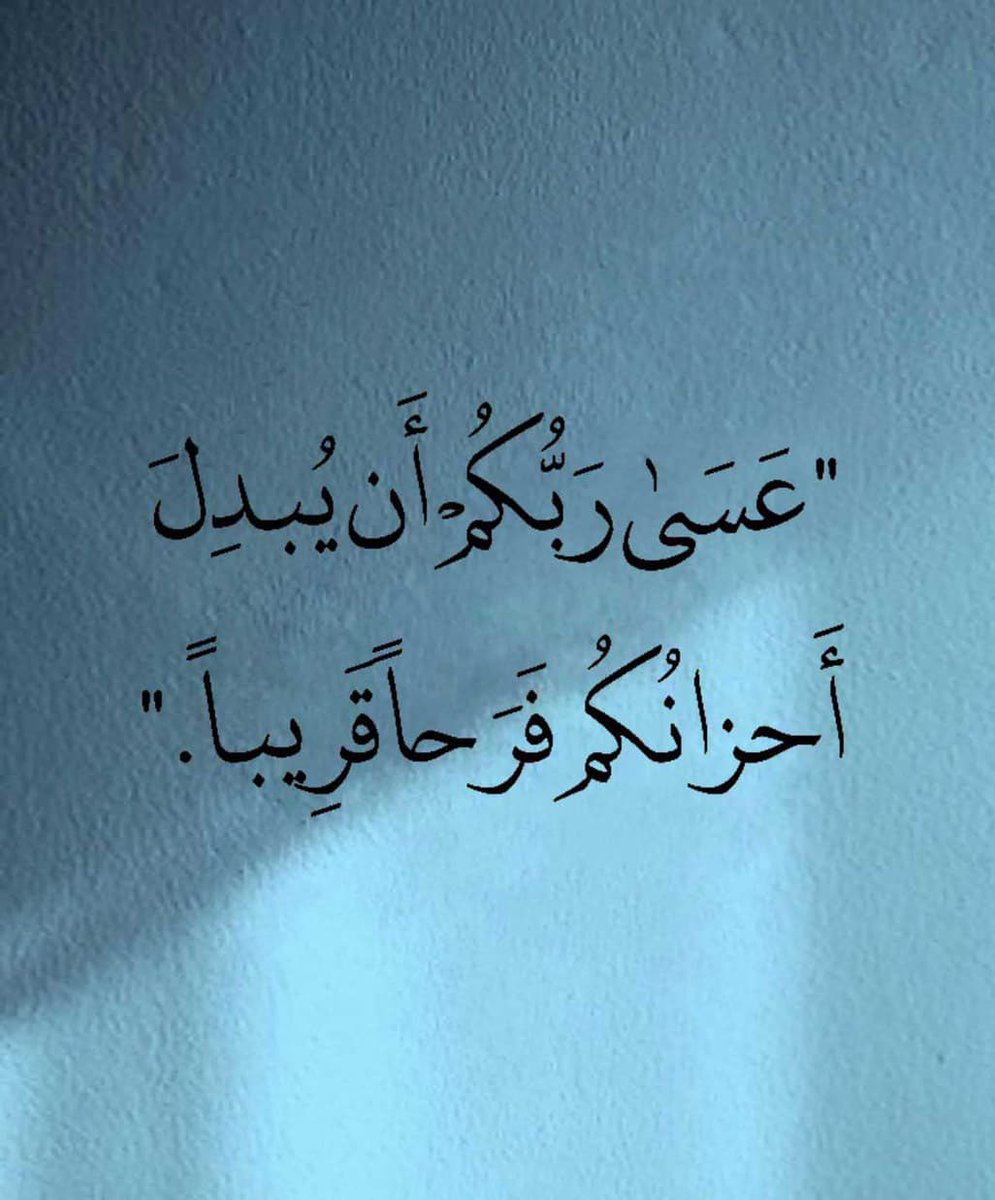 "عَسَىٰ رَبُّكُمْ أَن يُبدِلَ
أَحزانُكُمُ فَرَحاً قَرِيباً."